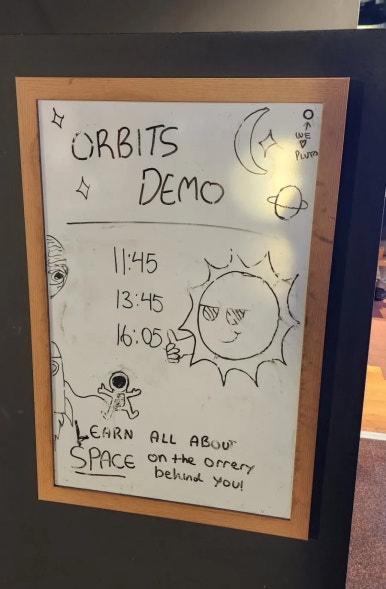 ORBITS
DEMO
WE
♥
PLUTO
11:45
13:45
16:05
LEARN ALL ABOUT
SPACE on the orrery
behind you!